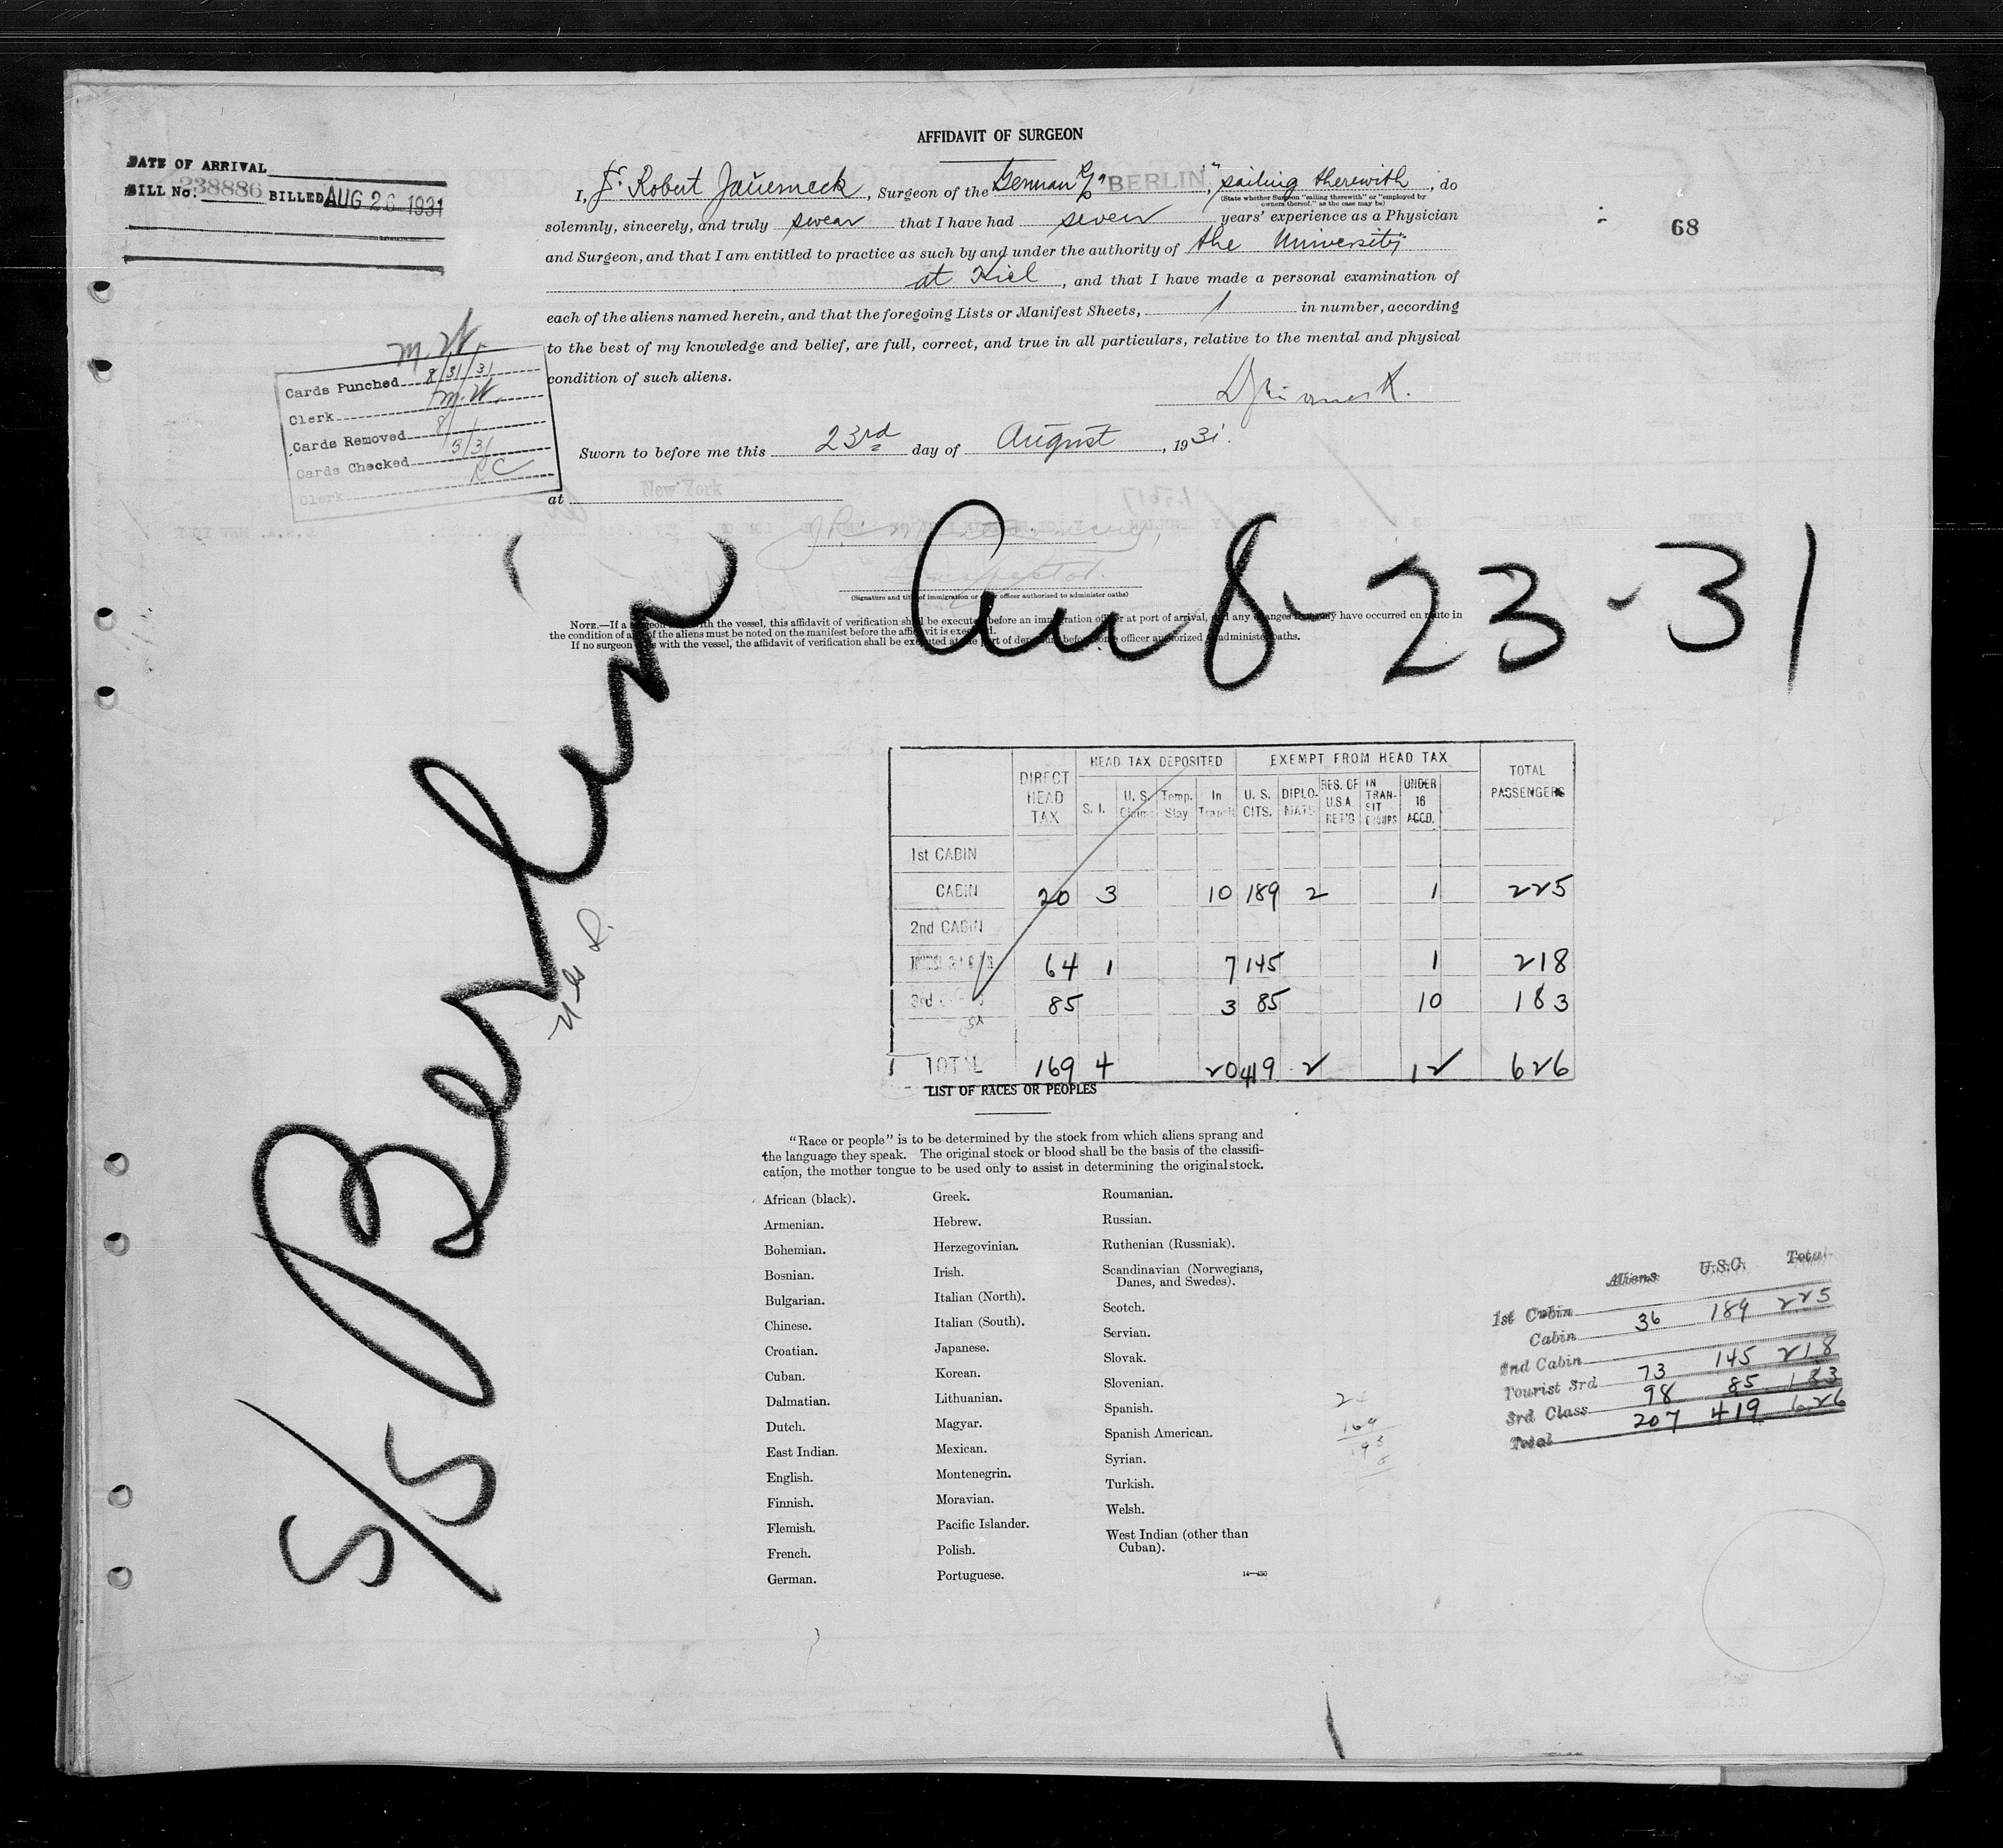 AFFIDAVIT OF SURGEON
DATE OF ARRIVAL
BILL No. 238886 BILLED AUG 26 1931
68
I, Dr. Robert, Surgeon of the German "BERLIN", sailing therewith, do
(State whether Surgeon "sailing therewith" or "employed by
owners thereof," as the case may be)
solemnly, sincerely, and truly swear that I have had seven years' experience as a Physician
and Surgeon, and that I am entitled to practice as such by and under the authority of the University
at Kiel, and that I have made a personal examination of
each of the aliens named herein, and that the foregoing Lists or Manifest Sheets, 1 in number, according
to the best of my knowledge and belief, are full, correct, and true in all particulars, relative to the mental and physical
condition of such aliens.
M. W.
Cards Punched 8/31/31
Clerk M. W.
Cards Removed
Cards Checked
Clerk
Sworn to before me this 23rd day of August, 1931.
at New York
Inspector.
(Signature and title of immigration or other officer authorized to administer oaths)
NOTE.—If a surgeon sails with the vessel, this affidavit of verification shall be executed before an immigration officer at port of arrival, and any changes that may have occurred en route in
the condition of any of the aliens must be noted on the manifest before the affidavit is executed.
If no surgeon sails with the vessel, the affidavit of verification shall be executed at the port of departure before some officer authorized to administer oaths.
S/S Berlin
Arr 8-23-31
DIRECT HEAD TAX
HEAD TAX DEPOSITED
EXEMPT FROM HEAD TAX
TOTAL PASSENGERS
S. I. U. S. Claims Temp. Stay In Transit U. S. CITS. DIPLOMATS RES. OF U.S.A. RET'G IN TRANSIT GROUPS UNDER 16 ACCD.
1st CABIN
CABIN 20 3 10 189 2 1 225
2nd CABIN
TOURIST 3rd 64 1 7 145 1 218
3rd 85 3 85 10 183
TOTAL 169 4 20 419 2 12 626
LIST OF RACES OR PEOPLES
"Race or people" is to be determined by the stock from which aliens sprang and
the language they speak. The original stock or blood shall be the basis of the classifi-
cation, the mother tongue to be used only to assist in determining the original stock.
African (black).
Armenian.
Bohemian.
Bosnian.
Bulgarian.
Chinese.
Croatian.
Cuban.
Dalmatian.
Dutch.
East Indian.
English.
Finnish.
Flemish.
French.
German.
Greek.
Hebrew.
Herzegovinian.
Irish.
Italian (North).
Italian (South).
Japanese.
Korean.
Lithuanian.
Magyar.
Mexican.
Montenegrin.
Moravian.
Pacific Islander.
Polish.
Portuguese.
Roumanian.
Russian.
Ruthenian (Russniak).
Scandinavian (Norwegians,
Danes, and Swedes).
Scotch.
Servian.
Slovak.
Slovenian.
Spanish.
Spanish American.
Syrian.
Turkish.
Welsh.
West Indian (other than
Cuban).
Aliens U.S.C. Total
1st Cabin
Cabin 36 189 225
2nd Cabin
Tourist 3rd 73 145 218
3rd Class 98 85 183
Total 207 419 626